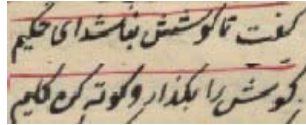 کفت تا کوشش نباشد ای حکیم
کوش را بکذار و کوته کن کلیم